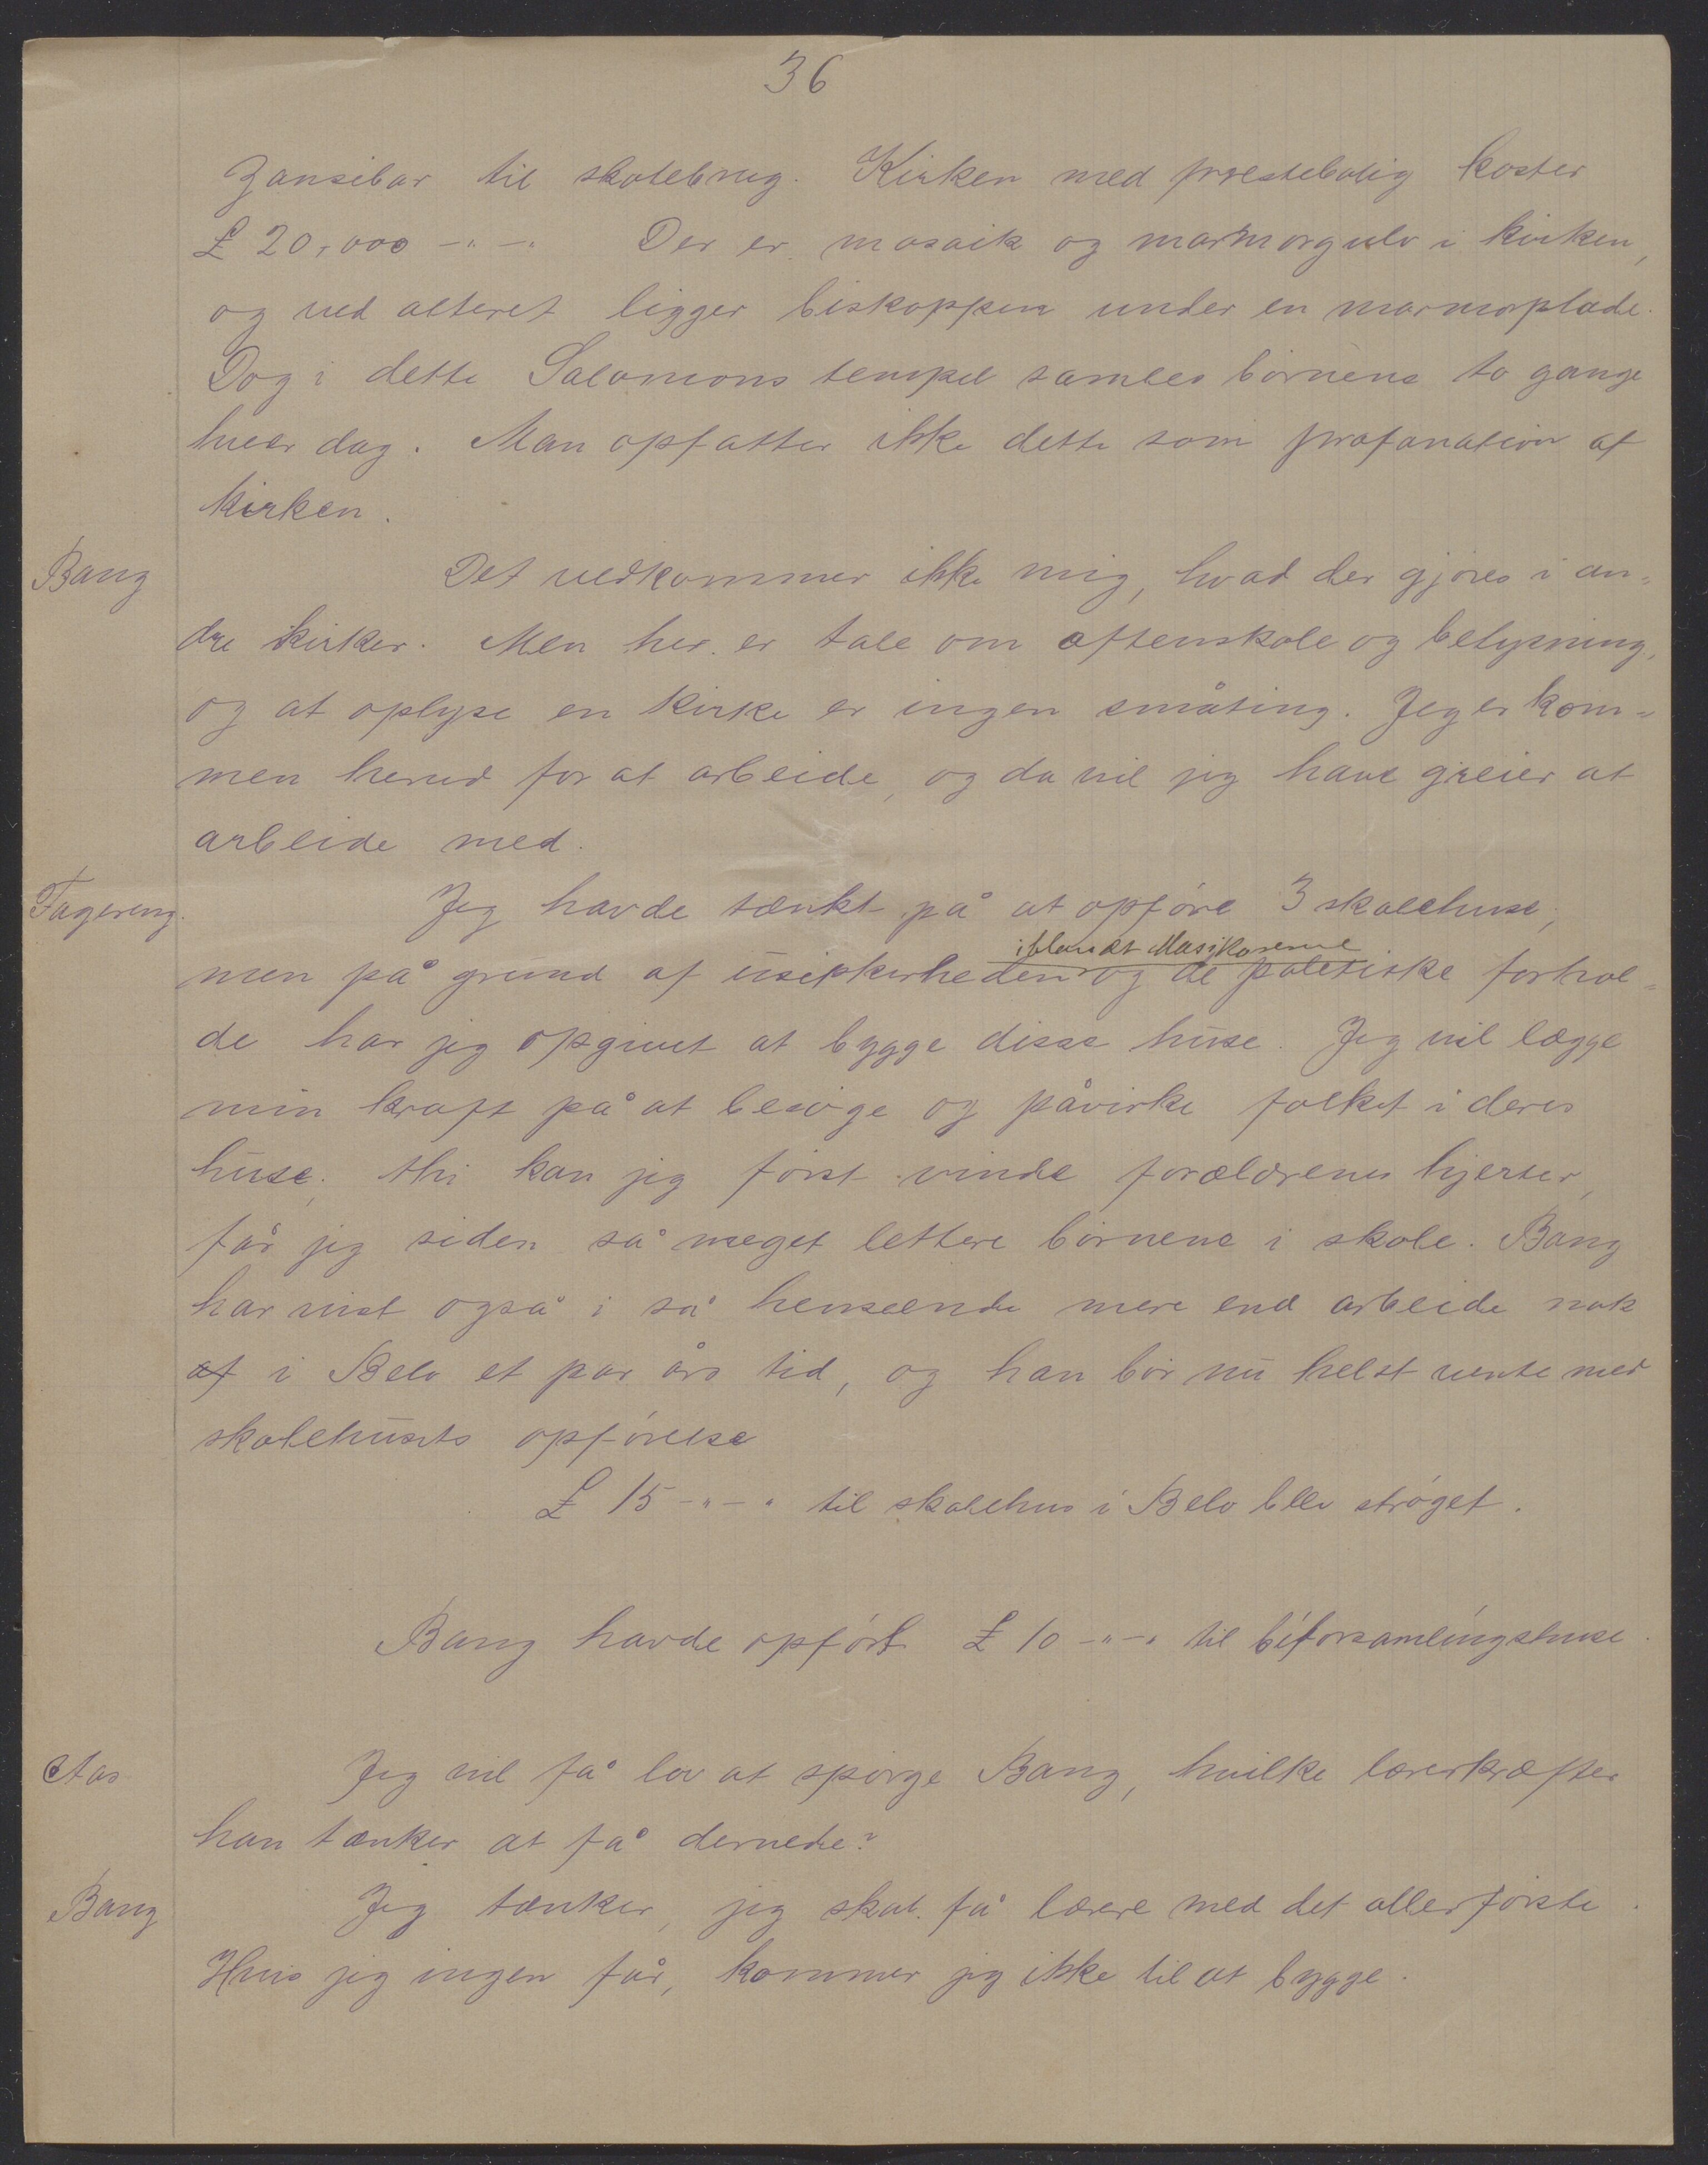 36
Zansibar til skolebrug. Kirken med præstebolig koster
£ 20,000 -"-" Der er mosaik og marmorgulv i kirken,
og ved alteret ligger biskoppen under en marmorplade.
Dog i dette Salomons tempel samles børnene to gange
hver dag. Man opfatter ikke dette som profanation af
kirken.
Bang Det vedkommer ikke mig, hvad der gjøres i an-
dre kirker. Men her er tale om aftenskole og belysning,
og at oplyse en kirke er ingen småting. Jeg er kom-
men herud for at arbeide, og da vil jeg have greier at
arbeide med.
Fagereng. Jeg havde tænkt på at opføre 3 skolehuse;
iblandt Masikorerne
men på grund af usikkerheden og de politiske forhol-
de har jeg opgivet at bygge disse huse. Jeg vil lægge
min kraft på at besøge og påvirke folket i deres
huse; thi kan jeg først vinde forældrenes hjerter,
får jeg siden så meget lettere børnene i skole. Bang
har vist også i så henseende mere end arbeide nok
af i Belo et par års tid, og han bør nu helst vente med
skolehusets opførelse
£ 15 -"-" til skolehus i Belo blev strøget.
Bang havde opført £ 10 -"-" til biforsamlingshuse.
Aas Jeg vil få lov at spørge Bang, hvilke lærerkræfter
han tænker at få dernede?
Bang Jeg tænker, jeg skal få lærere med det allerførste.
Hvis jeg ingen får, kommer jeg ikke til at bygge.